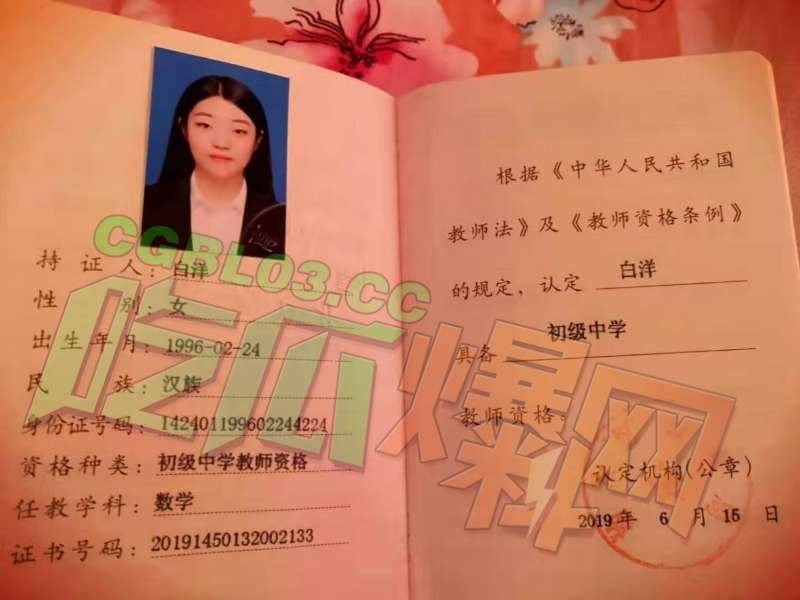 持证人：白洋
性别：女
出生年月：[已隐去]
民族：汉族
身份证号码：[已隐去]
资格种类：初级中学教师资格
任教学科：数学
证书号码：[已隐去]
根据《中华人民共和国
教师法》及《教师资格条例》
的规定，认定 白洋
具备 初级中学
教师资格。
认定机构(公章)
2019年 6 月 15 日
CGBL03.CC
吃瓜爆料网